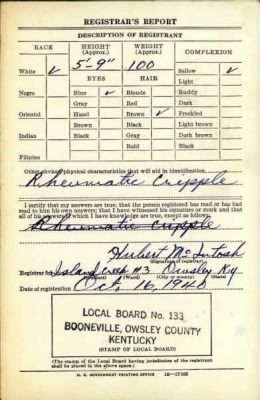 REGISTRAR'S REPORT
DESCRIPTION OF REGISTRANT
RACE HEIGHT (Approx.) WEIGHT (Approx.) COMPLEXION
White ✓ 5'-9" 100 Sallow ✓
EYES HAIR Light
Negro Blue ✓ Blonde Ruddy
Gray Red Dark
Oriental Hazel Brown ✓ Freckled
Brown Black Light brown
Indian Black Gray Dark brown
Bald Black
Filipino
Other obvious physical characteristics that will aid in identification
Rheumatic Cripple
I certify that my answers are true; that the person registered has read or has
had read to him his own answers; that I have witnessed his signature or mark and that
all of his answers of which I have knowledge are true, except as follows:
Rheumatic cripple
Hubert McIntosh
(Signature of registrar)
Registrar for Island Creek #3 Owsley Ky
(Precinct) (Ward) (City or county) (State)
Date of registration Oct, 16, 1940
LOCAL BOARD No. 133
BOONEVILLE, OWSLEY COUNTY
KENTUCKY
(STAMP OF LOCAL BOARD)
(The stamp of the Local Board having jurisdiction of the registrant
shall be placed in the above space.)
U. S. GOVERNMENT PRINTING OFFICE